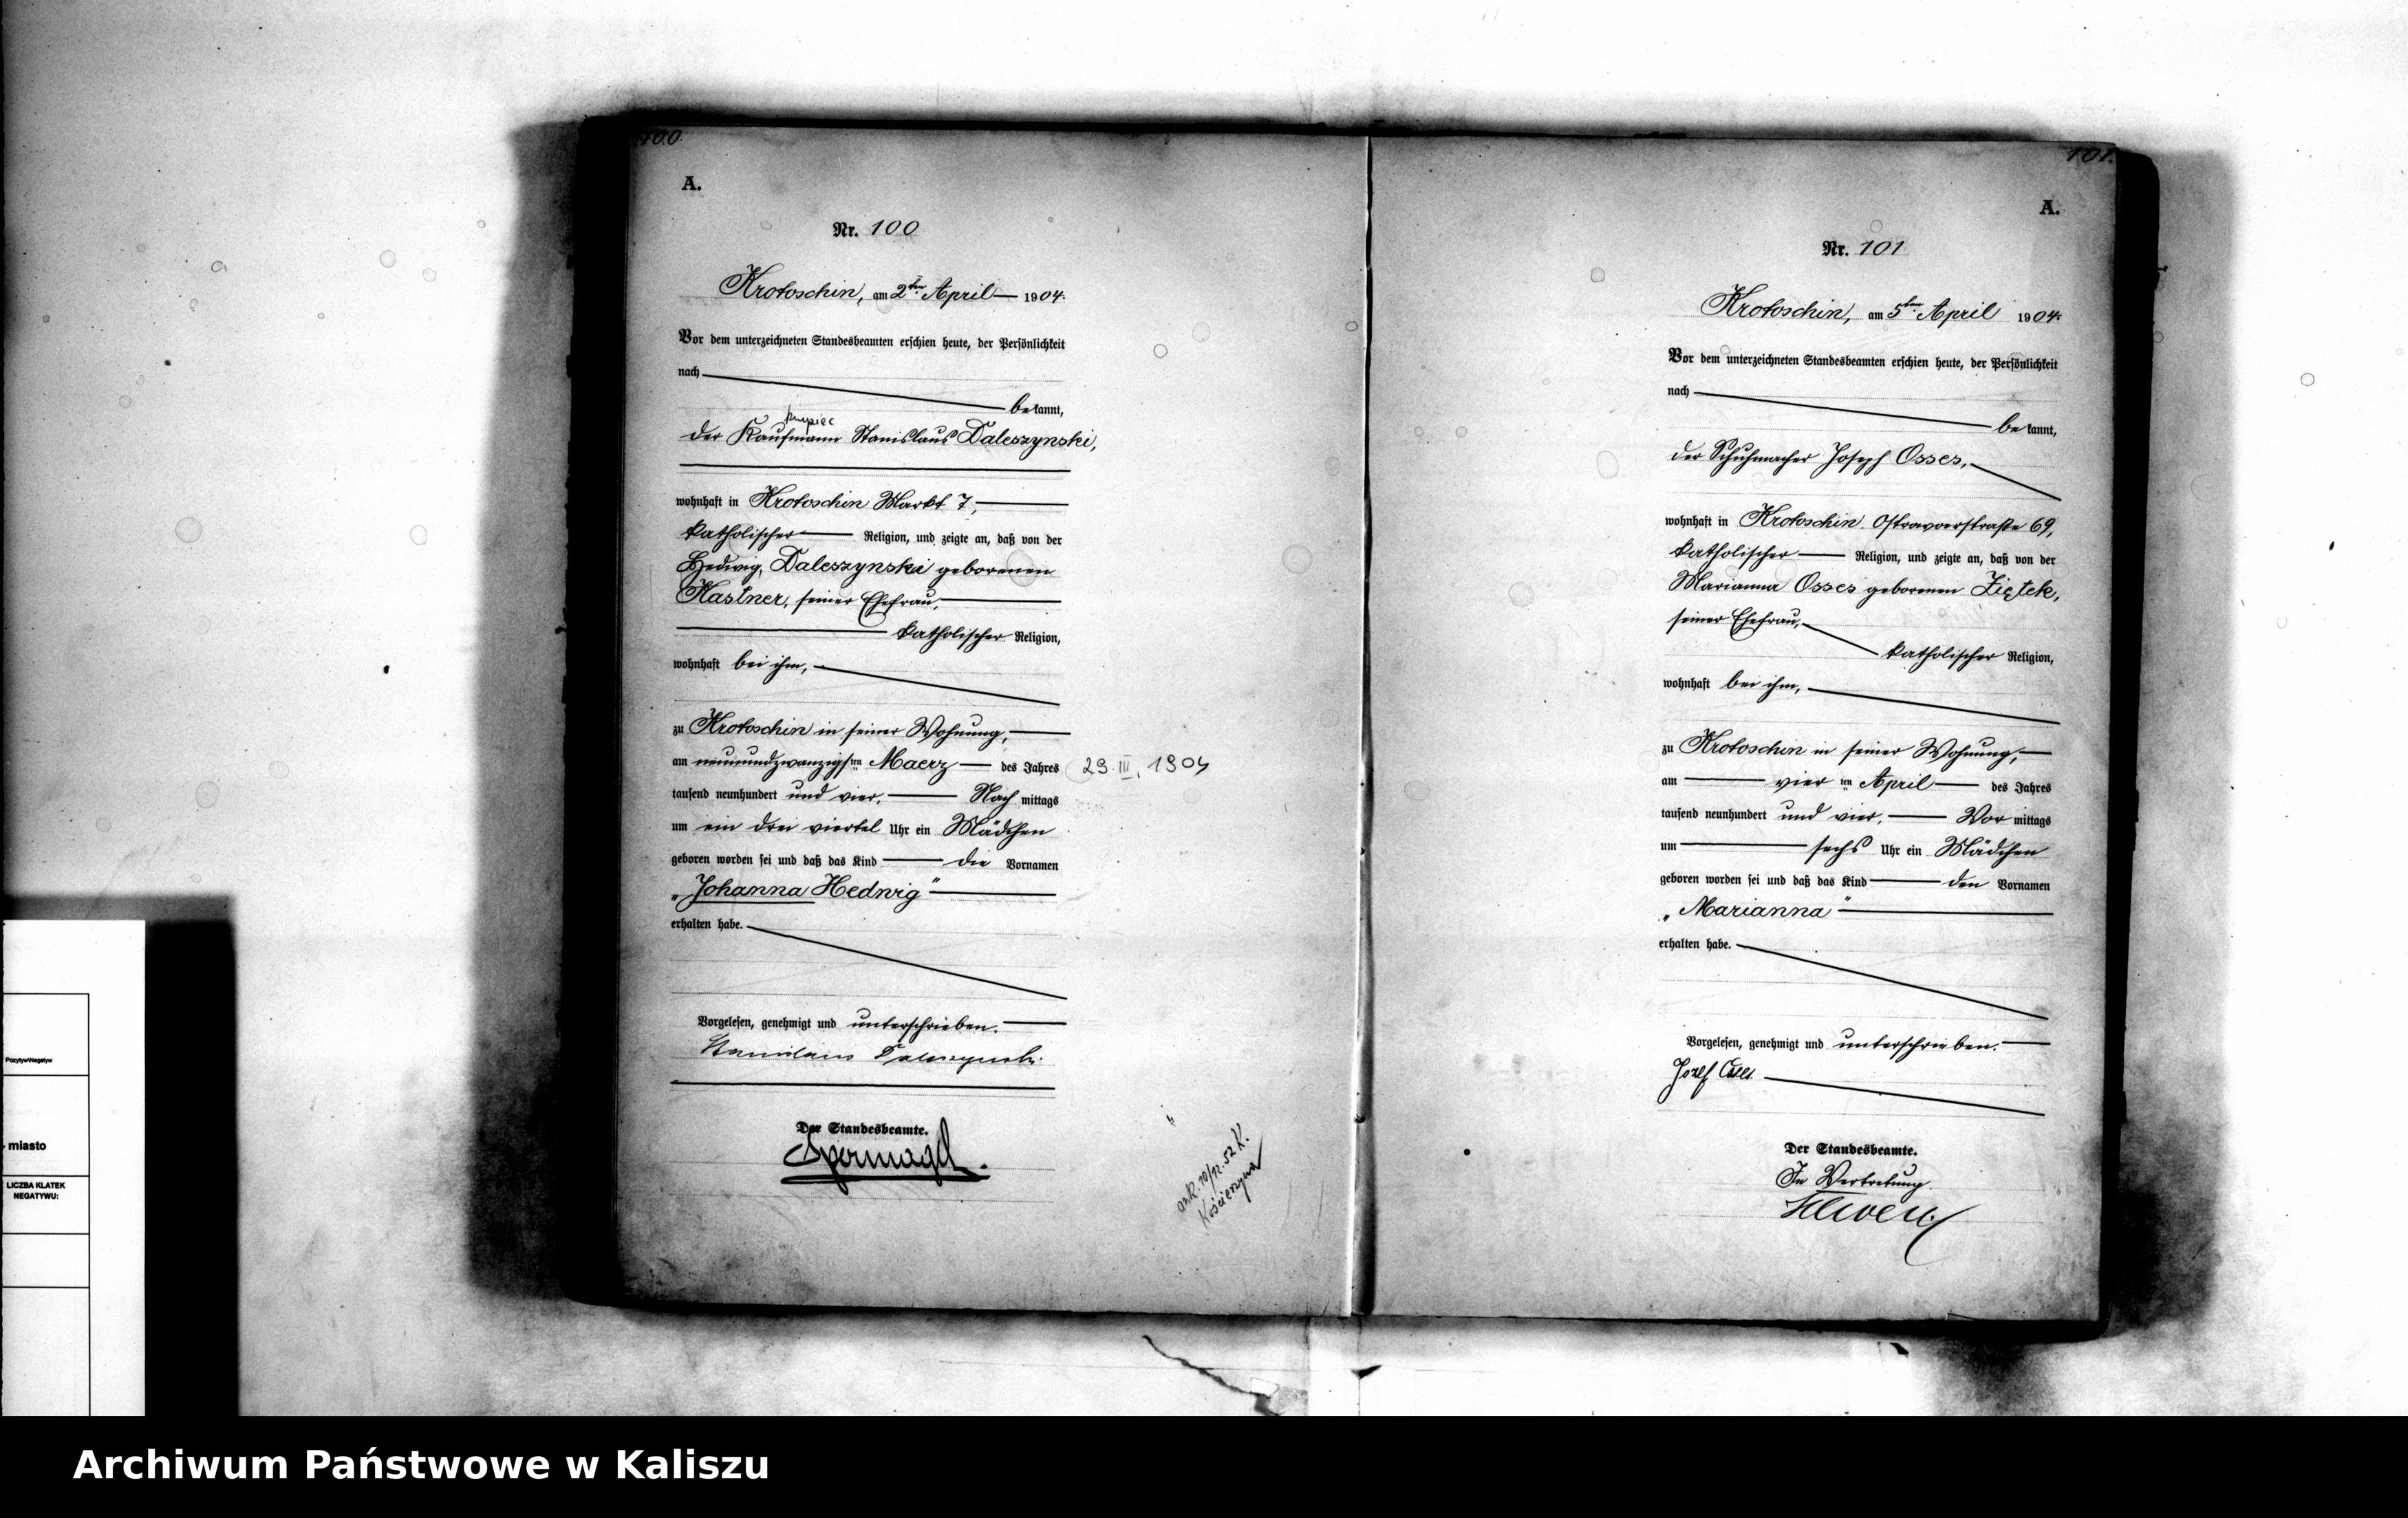 100.
A.
Nr. 100
Krotoschin, am 2ten April 1904.
Vor dem unterzeichneten Standesbeamten erschien heute, der Persönlichkeit
nach
bekannt,
kupiec
der Kaufmann Stanislaus Daleszynski,
wohnhaft in Krotoschin Markt 7,
katholischer Religion, und zeigte an, daß von der
Hedwig Daleszynski geborenen
Kastner, seiner Ehefrau,
katholischer Religion,
wohnhaft bei ihm,
zu Krotoschin in seiner Wohnung,
am neunundzwanzigsten Maerz des Jahres
29.III.1904
tausend neunhundert und vier, Nach mittags
um ein drei viertel Uhr ein Mädchen
geboren worden sei und daß das Kind die Vornamen
„Johanna Hedwig"
erhalten habe.
Vorgelesen, genehmigt und unterschrieben.
Stanislaus Daleszynski.
Der Standesbeamte.
Kościerzyna
101.
A.
Nr. 101
Krotoschin, am 5ten April 1904.
Vor dem unterzeichneten Standesbeamten erschien heute, der Persönlichkeit
nach
bekannt,
der Schuhmacher Joseph Osses,
wohnhaft in Krotoschin. Ostrowoerstraße 69,
katholischer Religion, und zeigte an, daß von der
Marianna Osses geborenen Ziętek,
seiner Ehefrau,
katholischer Religion,
wohnhaft bei ihm,
zu Krotoschin in seiner Wohnung,
am vierten April des Jahres
tausend neunhundert und vier, Vor mittags
um sechs Uhr ein Mädchen
geboren worden sei und daß das Kind den Vornamen
„Marianna"
erhalten habe.
Vorgelesen, genehmigt und unterschrieben.
Der Standesbeamte.
In Vertretung.
Pozytyw\Negatyw
- miasto
LICZBA KLATEK
NEGATYWU:
Archiwum Państwowe w Kaliszu